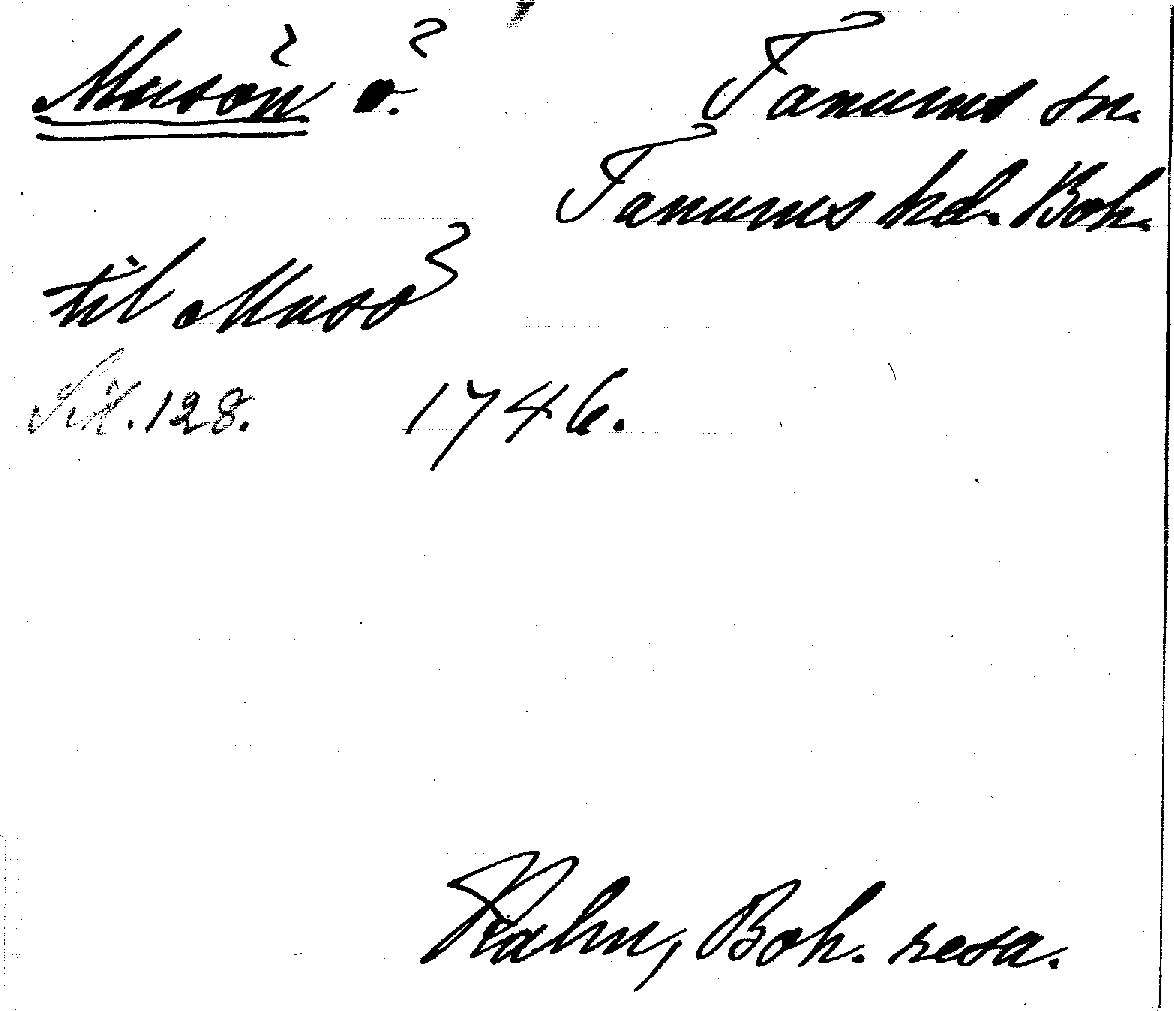 Musön ö.
Tanums sn.
Tanums hd. Boh.
til Musö
Sid. 128. 1746.
Kalm, Boh. resa.